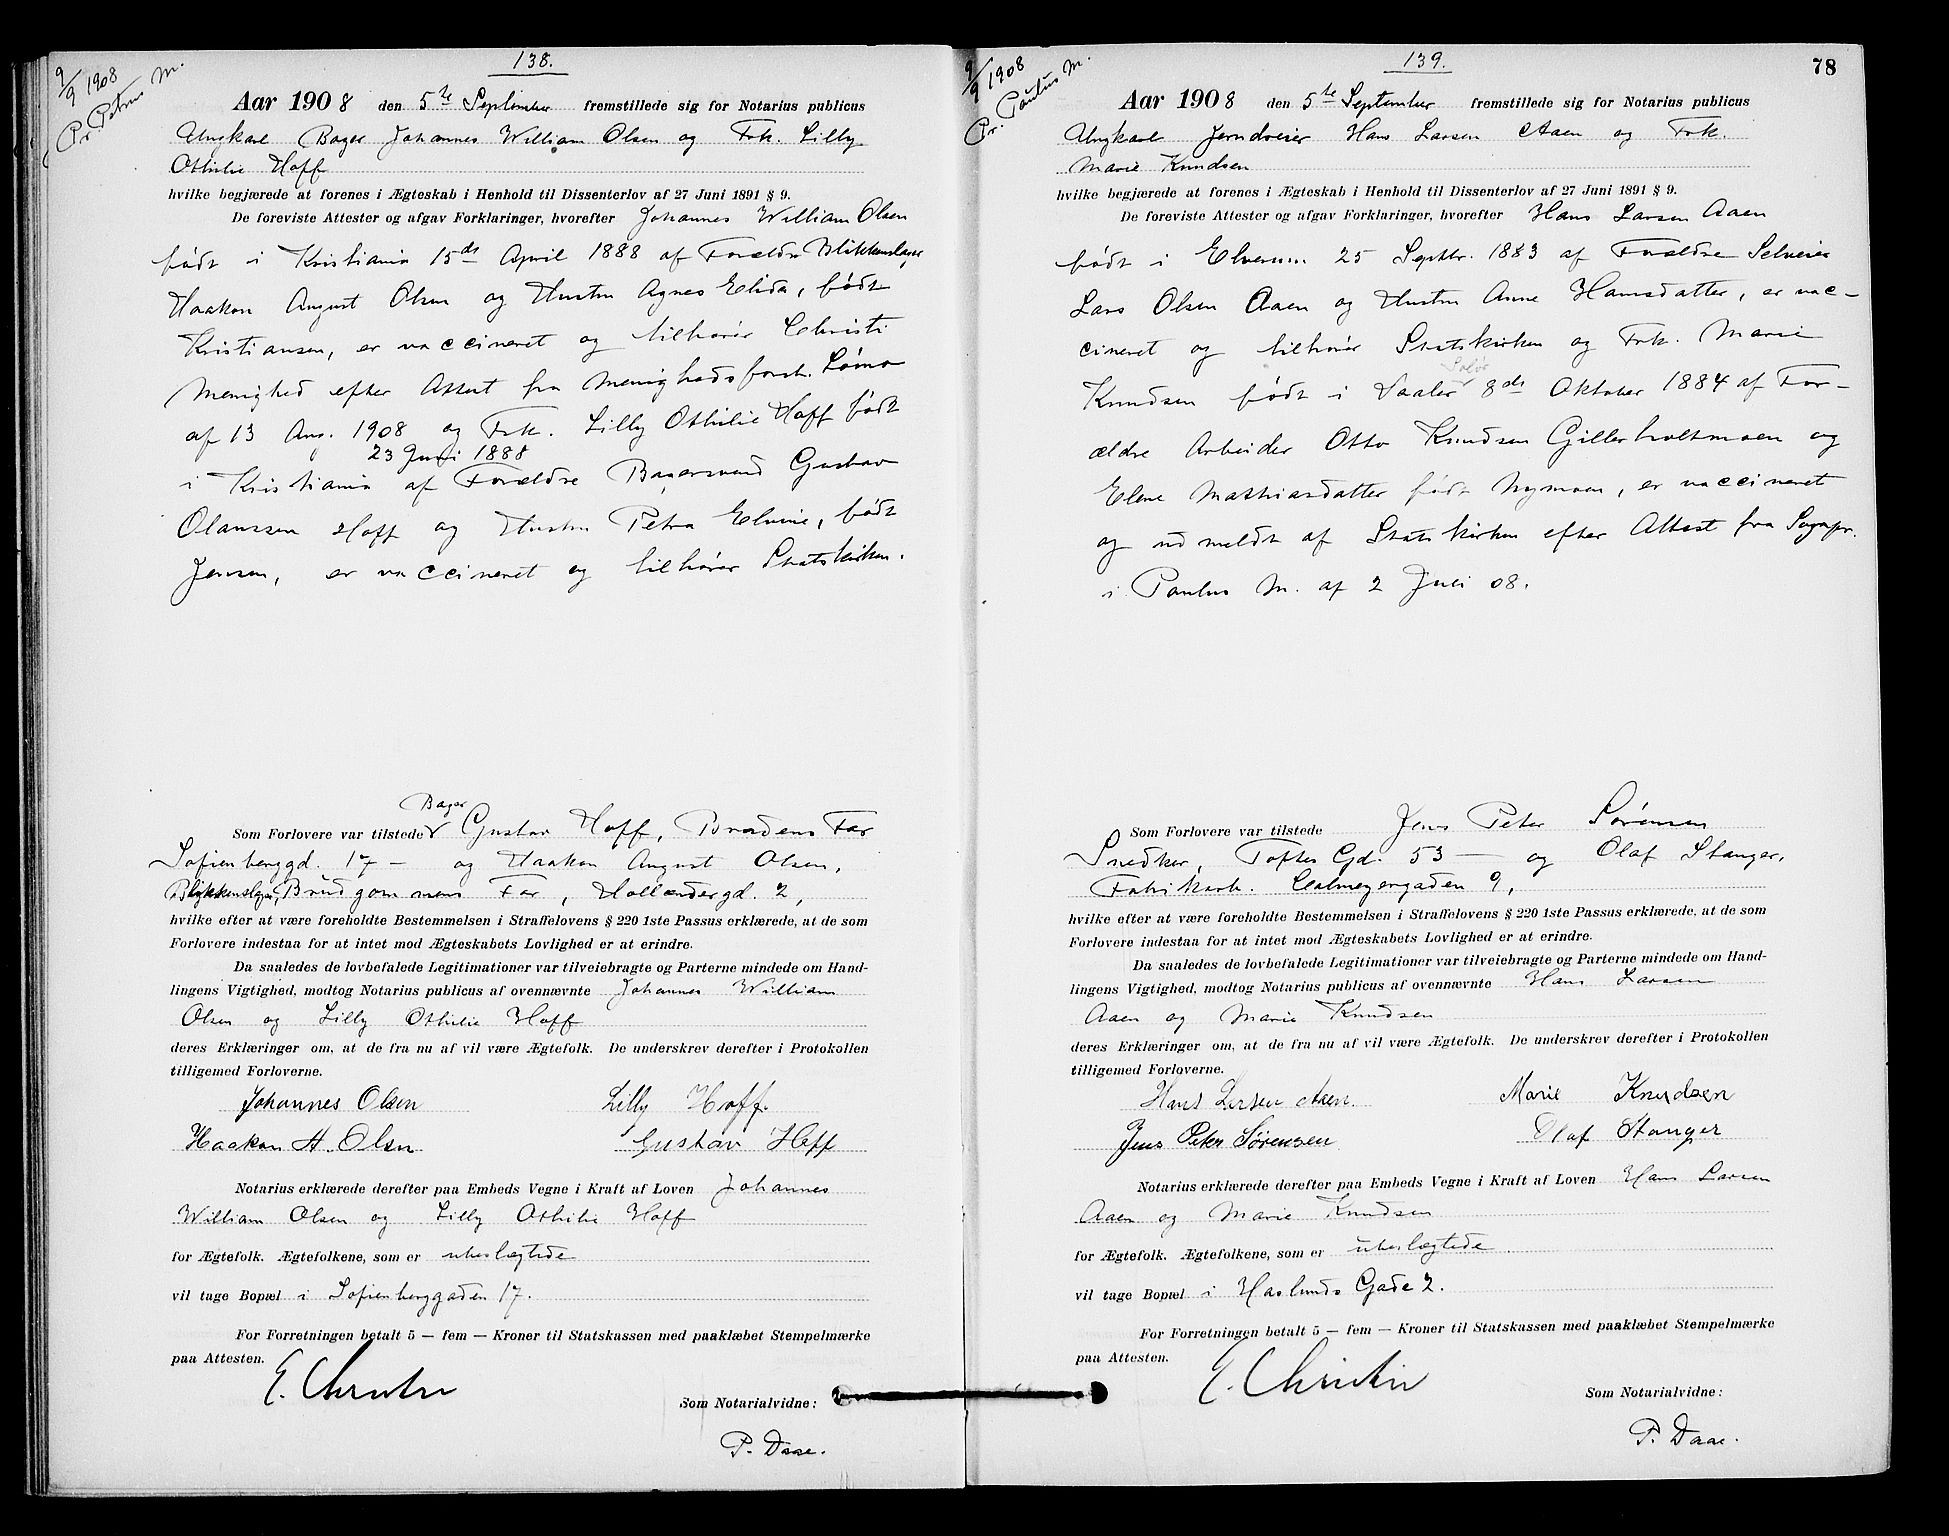 9/9 1908
Pr. Petrus M.
138.
Aar 1908 den 5te September fremstillede sig for Notarius publicus
Ungkarl Bager Johannes William Olsen og Frk. Lilly
Othilie Hoff
hvilke begjærede at forenes i Ægteskab i Henhold til Dissenterlov af 27 Juni 1891 § 9.
De foreviste Attester og afgav Forklaringer, hvorefter Johannes William Olsen
født i Kristiania 15de April 1888 af Forældre Blikkenslager
Haakon August Olsen og Hustru Agnes Elida, født
Kristiansen, er vaccineret og tilhører Christi
Menighed efter Attest fra Menighedsforst. Lømo
af 13 Aug. 1908 og Frk. Lilly Othilie Hoff født
23 Juni 1888
i Kristiania af Forældre Bagersvend Gustav
Olaussen Hoff og Hustru Petra Elvine, født
Jensen, er vaccineret og tilhører Statskirken.
Bager
Som Forlovere var tilstede Gustav Hoff, Brudens Far
Sofienberggd. 17 — og Haakon August Olsen,
Blikkenslager, Brudgommens Far, Hollændergd. 2,
hvilke efter at være foreholdte Bestemmelsen i Straffelovens § 220 1ste Passus erklærede, at de som
Forlovere indestaa for at intet mod Ægteskabets Lovlighed er at erindre.
Da saaledes de lovbefalede Legitimationer var tilveiebragte og Parterne mindede om Hand-
lingens Vigtighed, modtog Notarius publicus af ovennævnte Johannes William
Olsen og Lilly Othilie Hoff
deres Erklæringer om, at de fra nu af vil være Ægtefolk. De underskrev derefter i Protokollen
tilligemed Forloverne.
Johannes Olsen Lilly Hoff.
Haakon A. Olsen Gustav Hoff
Notarius erklærede derefter paa Embeds Vegne i Kraft af Loven Johannes
William Olsen og Lilly Othilie Hoff
for Ægtefolk. Ægtefolkene, som er ubeslægtede
vil tage Bopæl i Sofienberggaden 17.
For Forretningen betalt 5 — fem — Kroner til Statskassen med paaklæbet Stempelmærke
paa Attesten.
E. Christie
Som Notarialvidne:
P. Daae.
9/9 1908
Pr. Paulus M.
139.
78
Aar 1908 den 5te September fremstillede sig for Notarius publicus
Ungkarl Jerndreier Hans Larsen Aaen og Frk.
Marie Knudsen
hvilke begjærede at forenes i Ægteskab i Henhold til Dissenterlov af 27 Juni 1891 § 9.
De foreviste Attester og afgav Forklaringer, hvorefter Hans Larsen Aaen
født i Elverum 25 Septbr. 1883 af Forældre Selveier
Lars Olsen Aaen og Hustru Anne Hansdatter, er vac-
cineret og tilhører Statskirken og Frk. Marie
Solør
Knudsen født i Vaaler 8de Oktober 1884 af For-
ældre Arbeider Otto Knudsen Gillerholtmoen og
Elene Mathiasdatter født Nymoen, er vaccineret
og udmeldt af Statskirken efter Attest fra Sognepr.
i Paulus M. af 2 Juli 08.
Som Forlovere var tilstede Jens Peter Sørensen
Snedker, Toftes Gd. 53 — og Olaf Stanger,
Fabrikarb. Calmeyergaden 9,
hvilke efter at være foreholdte Bestemmelsen i Straffelovens § 220 1ste Passus erklærede, at de som
Forlovere indestaa for at intet mod Ægteskabets Lovlighed er at erindre.
Da saaledes de lovbefalede Legitimationer var tilveiebragte og Parterne mindede om Hand-
lingens Vigtighed, modtog Notarius publicus af ovennævnte Hans Larsen
Aaen og Marie Knudsen
deres Erklæringer om, at de fra nu af vil være Ægtefolk. De underskrev derefter i Protokollen
tilligemed Forloverne.
Hans Larsen Aaen. Marie Knudsen
Jens Peter Sørensen Olaf Stanger
Notarius erklærede derefter paa Embeds Vegne i Kraft af Loven Hans Larsen
Aaen og Marie Knudsen
for Ægtefolk. Ægtefolkene, som er ubeslægtede
vil tage Bopæl i Haslunds Gade 2.
For Forretningen betalt 5 — fem — Kroner til Statskassen med paaklæbet Stempelmærke
paa Attesten.
E. Christie
Som Notarialvidne:
P. Daae.